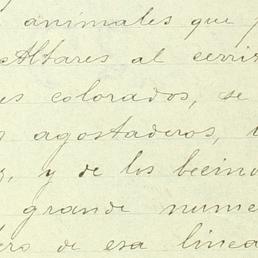 animales que
Altares al cerri
es colorados, se
s agostaderos,
, y de los becino
grande nume
ero de esa linea